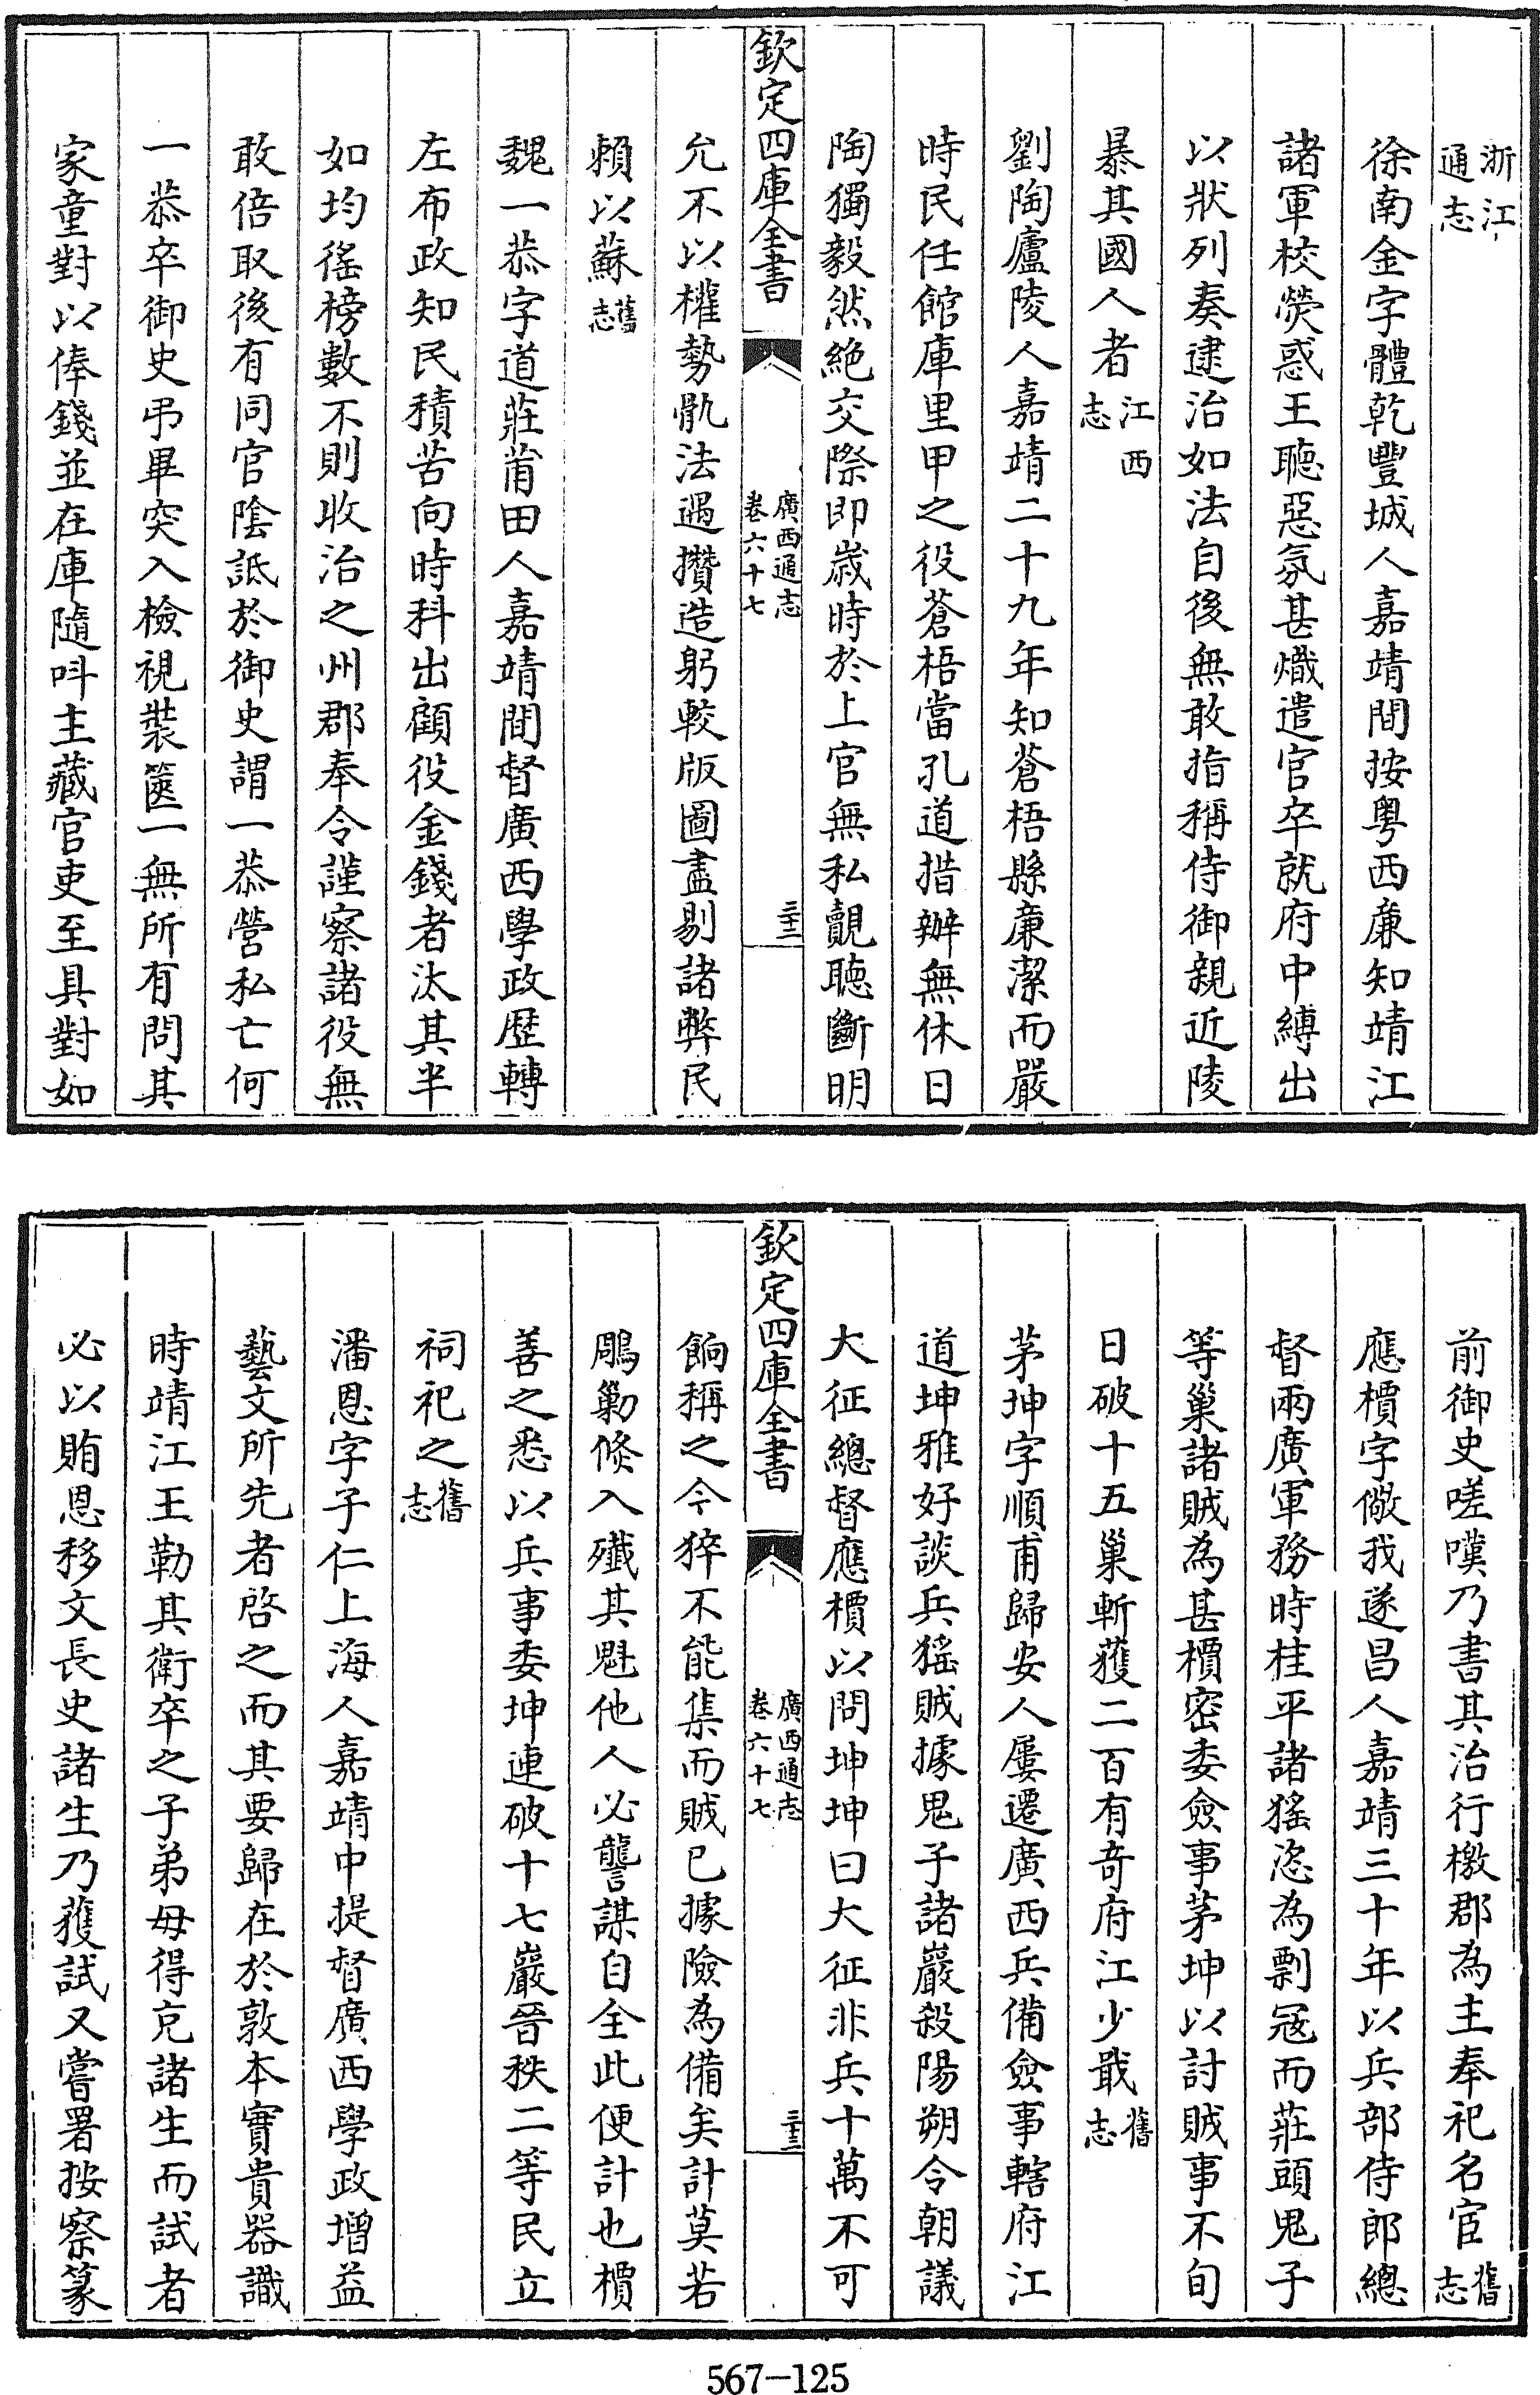 浙江通志
徐南金字體乾豐城人嘉靖間按粤西廉知靖江
諸軍校熒惑王聽惡氛甚熾遣官卒就府中縛出
以狀列奏逮治如法自後無敢指稱侍御親近陵
暴其國人者江西志
劉陶廬陵人嘉靖二十九年知蒼梧縣廉潔而嚴
時民任館庫里甲之役蒼梧當孔道措辦無休日
陶獨毅然絶交際即歳時於上官無私覿聽斷明
欽定四庫全書 廣西通志卷六十七 三十二
允不以權勢骫法遇攢造躬較版圖盡剔諸弊民
賴以蘇舊志
魏一恭字道莊莆田人嘉靖間督廣西學政歴轉
左布政知民積苦向時科出顧役金錢者汰其半
如均徭榜數不則收治之州郡奉令謹察諸役無
敢倍取後有同官陰詆於御史謂一恭營私亡何
一恭卒御史弔畢突入檢視裝篋一無所有問其
家童對以俸錢並在庫隨呌主藏官吏至具對如
前御史嗟嘆乃書其治行檄郡為主奉祀名宦舊志
應檟字儆我遂昌人嘉靖三十年以兵部侍郎總
督兩廣軍務時桂平諸猺恣為剽寇而莊頭鬼子
等巢諸賊為甚檟密委僉事茅坤以討賊事不旬
日破十五巢斬獲二百有奇府江少戢舊志
茅坤字順甫歸安人屢遷廣西兵備僉事轄府江
道坤雅好談兵猺賊據鬼子諸巖殺陽朔令朝議
大征總督應檟以問坤坤曰大征非兵十萬不可
欽定四庫全書 廣西通志卷六十七 三十三
餉稱之今猝不能集而賊已據險為備矣計莫若
鵰勦倐入殱其魁他人必讋謀自全此便計也檟
善之悉以兵事委坤連破十七巖晉秩二等民立
祠祀之舊志
潘恩字子仁上海人嘉靖中提督廣西學政增益
藝文所先者啓之而其要歸在於敦本實貴器識
時靖江王勒其衛卒之子弟毋得充諸生而試者
必以賄恩移文長史諸生乃獲試又嘗署按察篆
567-125